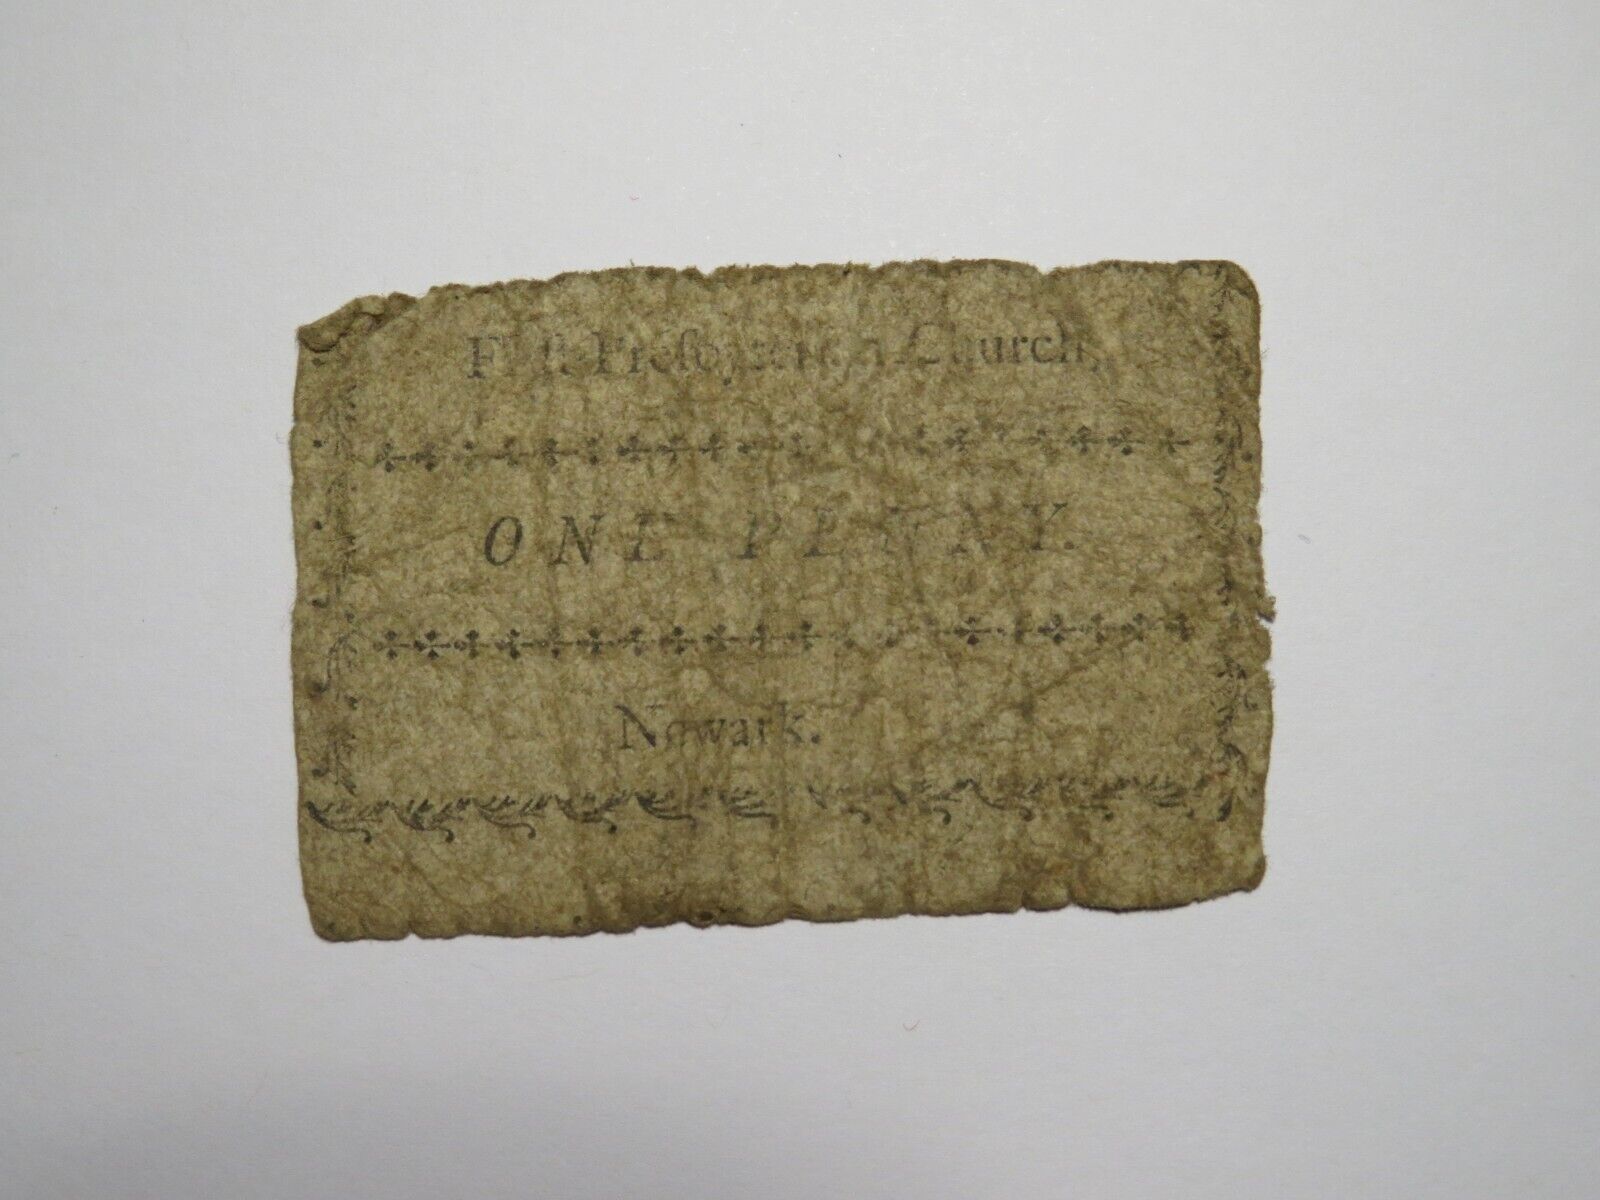 Firſt Preſbyterian Church,
ONE PENNY.
Newark.